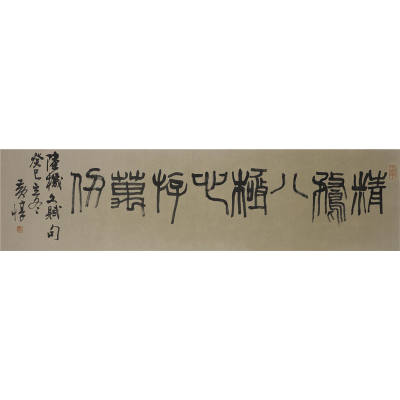 精鶩八極心游萬仞
陸機文賦句
癸巳立冬